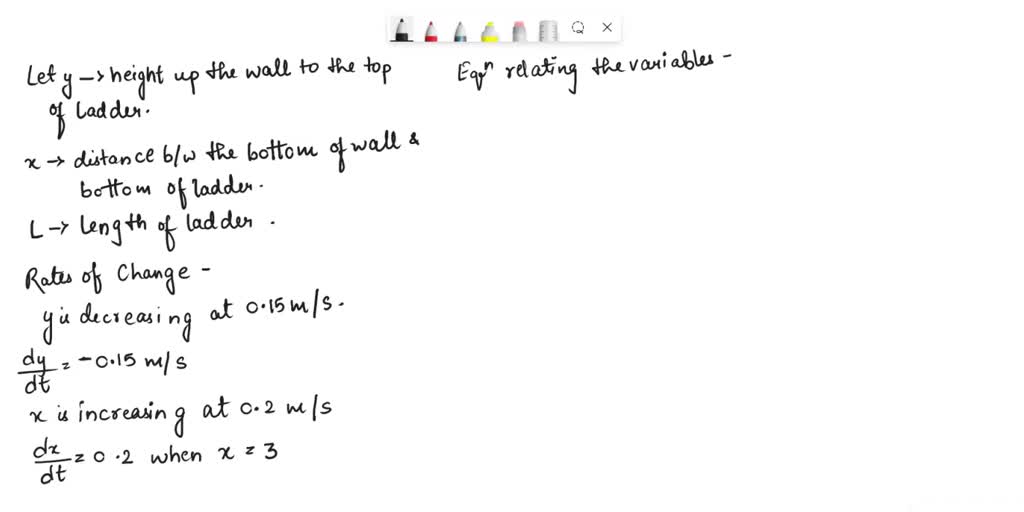 Let y → height up the wall to the top
of ladder.
x → distance b/w the bottom of wall &
bottom of ladder.
L → length of ladder.
Rates of Change -
y is decreasing at 0.15 m/s.
dy/dt = -0.15 m/s
x is increasing at 0.2 m/s
dx/dt = 0.2 when x = 3
Eqⁿ relating the variables -